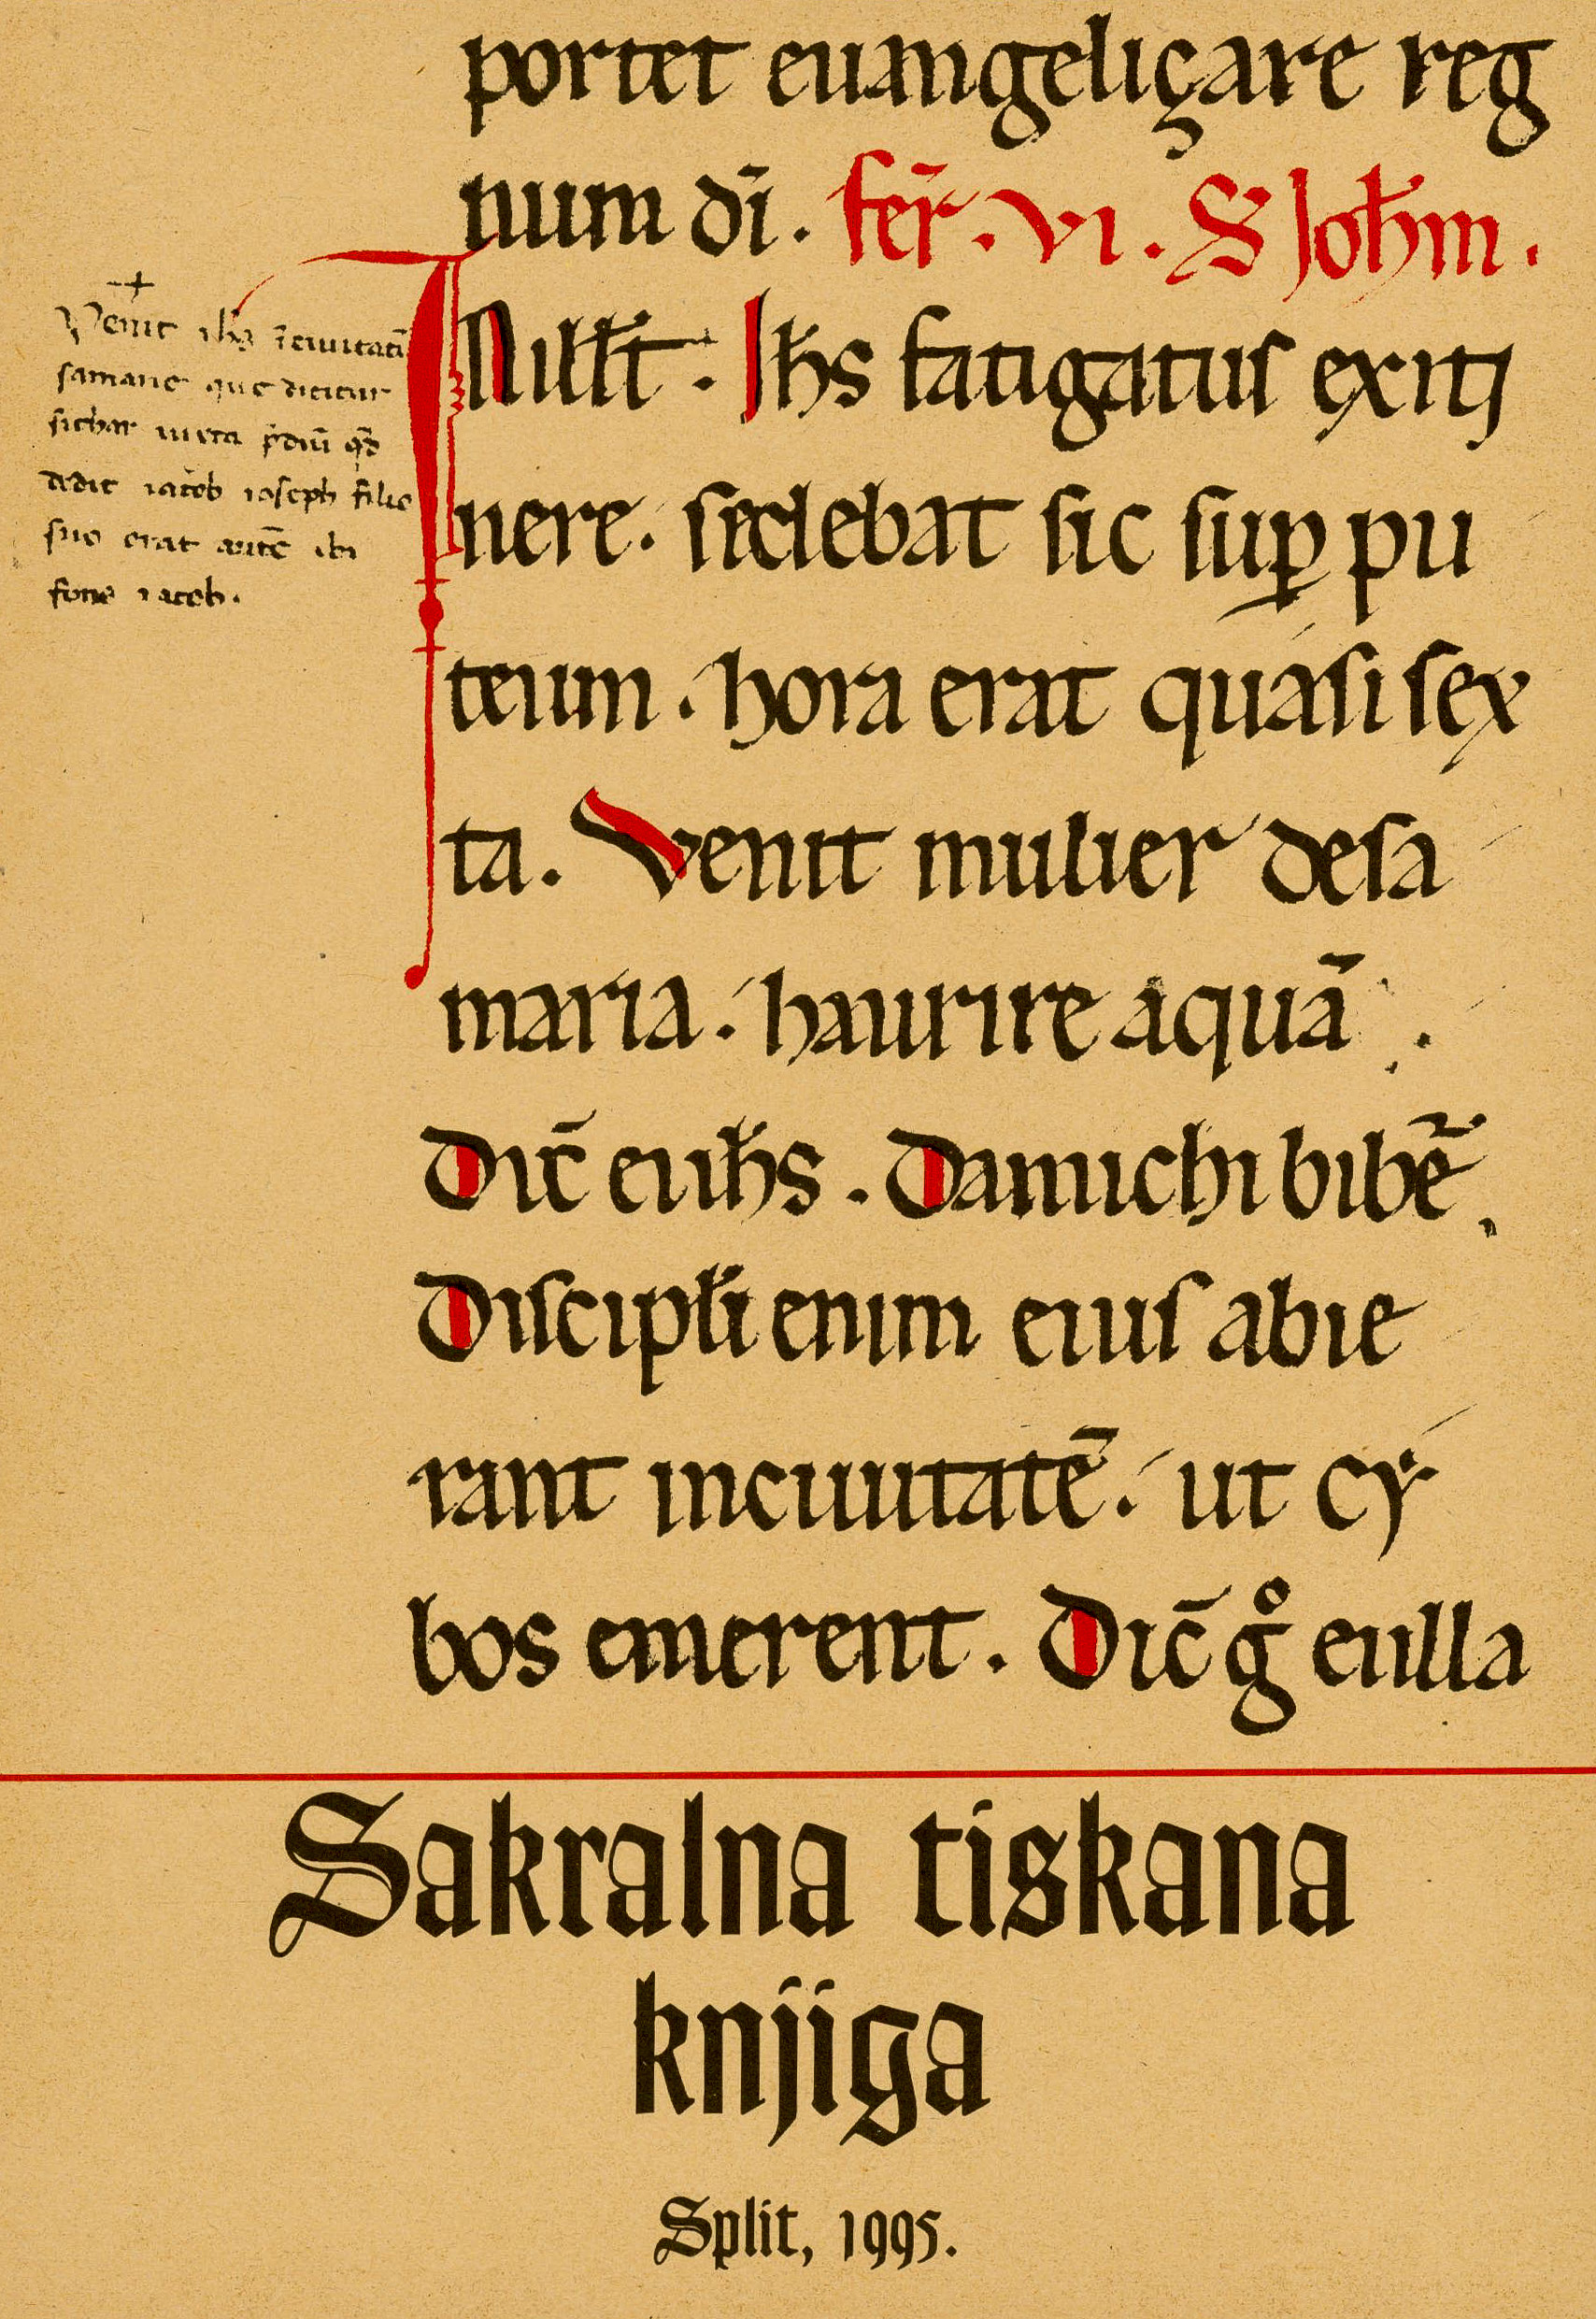 portet euangeliçare reg
num dī. fer̄. vi. S Joh̄m.
INillt̄. Ih̄s fatigatus exitj
nere. sedebat sic sup̲ pu
teum. hora erat quasi sex
ta. Venit mulier desa
maria. haurire aquā.
Dic̄ eiih̄s. Damichi bibē.
Discipłi enim eius abie
rant inciuitatē. ut cy
bos emerent. Dic̄ g̊ eiilla
Venit ih̄s ī ciuitatē
samarie que dicitur
sichar iuxta p̄diū qd̄
dedit iacob ioseph filio
suo erat autē ibi
fons iacob.
Sakralna tiskana
knjiga
Split, 1995.